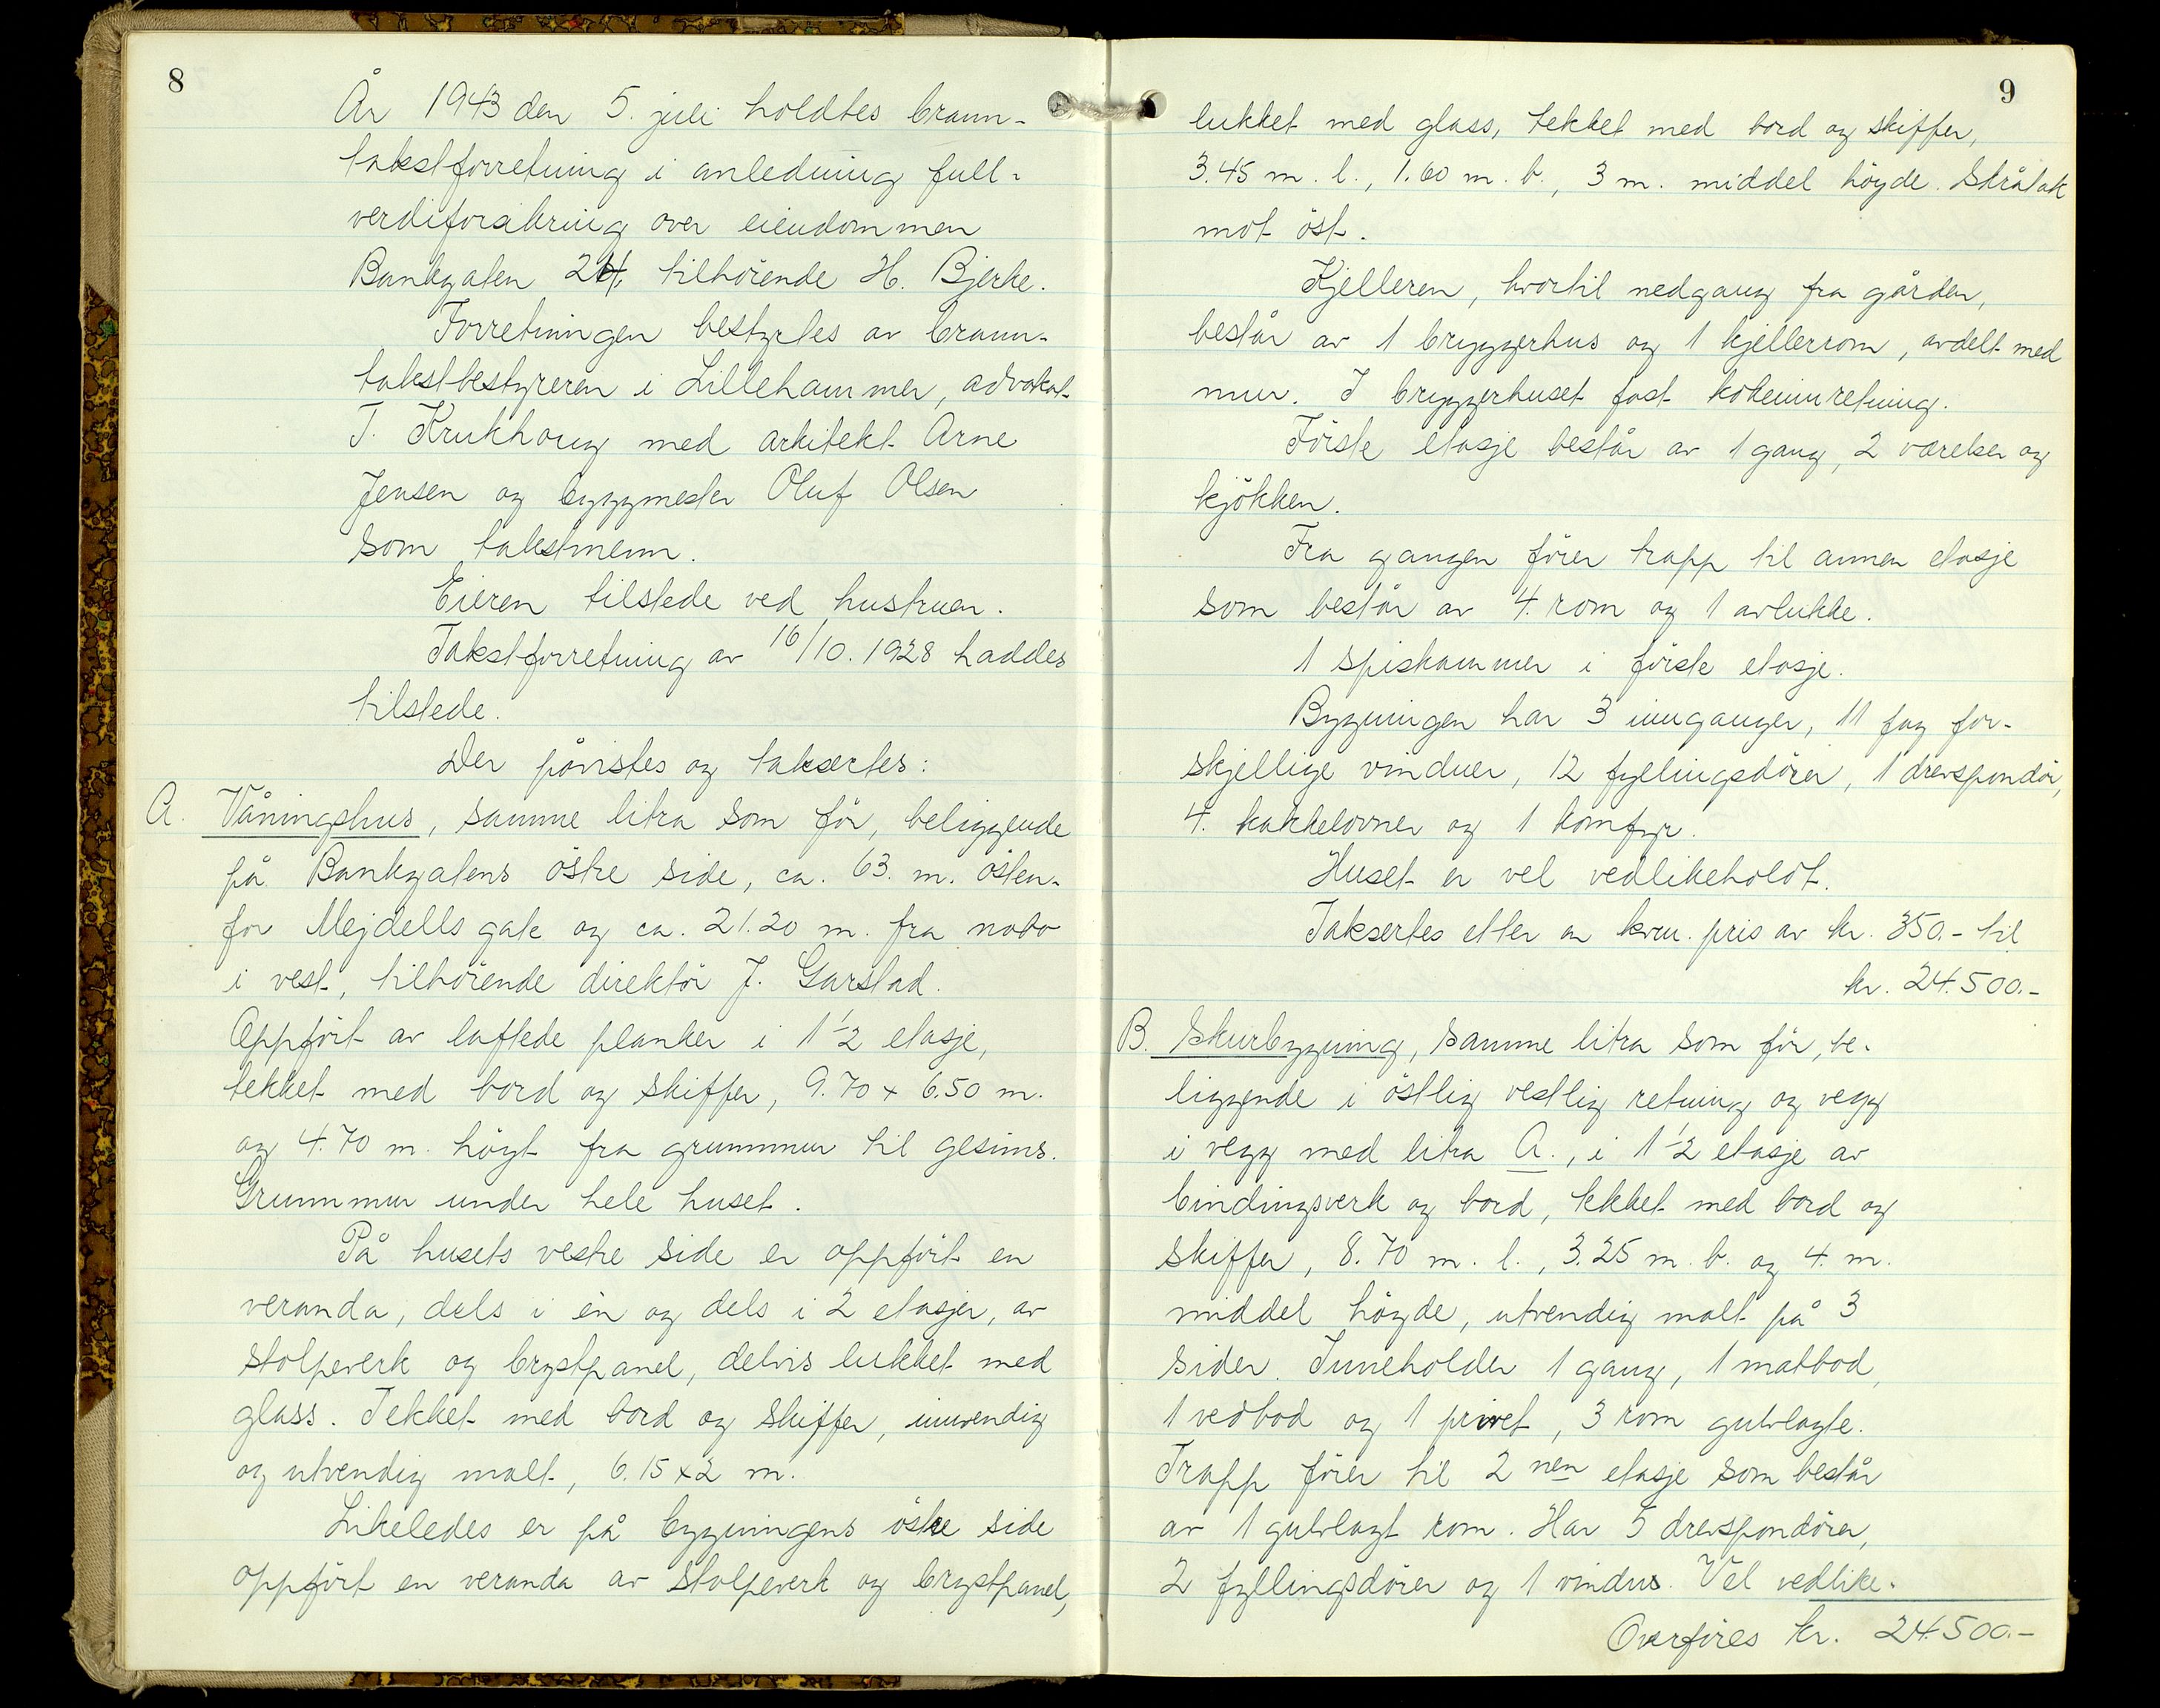 8
År 1943 den 5. juli holdtes brann-
takstforretning i anledning full-
verdiforsikring over eiendommen
Bankgaten 24, tilhörende H. Bjerke.
Forretningen bestyrtes av brann-
takstbestyreren i Lillehammer, advokat
T. Krukhoug med arkitekt Arne
Jensen og byggmester Oluf Olsen
som takstmenn.
Eieren tilstede ved hustruen.
Takstforretning av 16/10. 1928 haddes
tilstede.
Der påvistes og taksertes:
A. Våningshus, samme litra som för, beliggende
på Bankgatens östre side, ca. 63. m. östen-
for Mejdells gate og ca. 21.20 m. fra nabo
i vest, tilhörende direktör J. Garstad.
Oppfört av laftede planker i 1 1/2 etasje,
tekket med bord og skiffer, 9.70 x 6.50 m.
og 4.70 m. höyt fra grunnmur til gesims.
Grunnmur under hele huset.
På husets vestre side er oppfört en
veranda, dels i én og dels i 2 etasjer, av
stolpeverk og brystpanel, delvis lukket med
glass. Tekket med bord og skiffer, innvendig
og utvendig malt, 6.15 x 2 m.
Likeledes er på bygningens östre side
oppfört en veranda av stolpeverk og brystpanel,
9
lukket med glass, tekket med bord og skiffer,
3.45 m. l., 1.60 m. b., 3 m. middel höyde. Skråtak
mot öst.
Kjelleren, hvortil nedgang fra gården,
består av 1 bryggerhus og 1 kjellerrom, avdelt med
mur. I bryggerhuset fast kokeinnretning.
Förste etasje består av 1 gang, 2 værelser og
kjökken.
Fra gangen förer trapp til annen etasje
som består av 4. rom og 1 avlukke.
1 spiskammer i förste etasje.
Bygningen har 3 innganger, 11 fag for-
skjellige vinduer, 12 fyllingsdörer, 1 drevspondör,
4. kakkelovner og 1 komfyr.
Huset er vel vedlikeholdt.
Taksertes etter en kvm. pris av kr. 350.- til
kr. 24.500.-
B. Skurbygning, samme litra som för, be-
liggende i östlig vestlig retning og vegg
i vegg med litra A., i 1 1/2 etasje av
bindingsverk og bord, tekket med bord og
skiffer, 8.70 m. l., 3.25 m. b. og 4. m.
middel höyde, utvendig malt på 3
sider. Inneholder 1 gang, 1 matbod,
1 vedbod og 1 privet, 3 rom gulvlagte.
Trapp förer til 2 nen etasje som består
av 1 gulvlagt rom. Har 5 drevspondörer,
2 fyllingsdörer og 1 vindus. Vel vedlike-
Overföres kr. 24.500.-